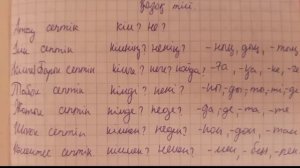 Қазақ тілі
Атау септік кім? не?
Ілік септік кімнің? ненің? -ның, -дың, -тың
Барыс септік кімге? неге? қайда? -ға, -қа, -ке, -ге
Табыс септік кімді? нені? -ны, -ды, -ты, -ді
Жатыс септік кімде? неде? -да, -де, -та, -те
Шығыс септік кімнен? неден? -нан, -дан, -тан
Көмектес септік кіммен? немен? -мен, -бен, -пен